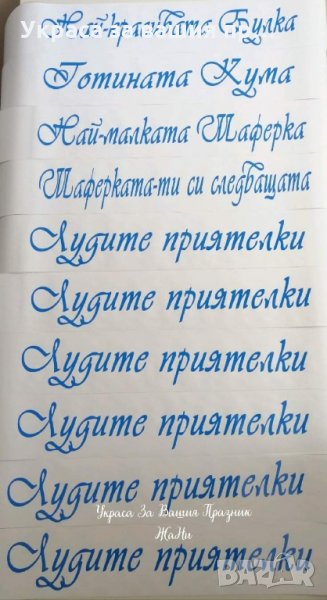 Украса за вашия по
Най-красивата Булка
Готината Кума
Най-малката Шаферка
Шаферката-ти си следващата
Лудите приятелки
Лудите приятелки
Лудите приятелки
Лудите приятелки
Лудите приятелки
Украса За Вашия Празник
ЖаНи
Лудите приятелки
bazar